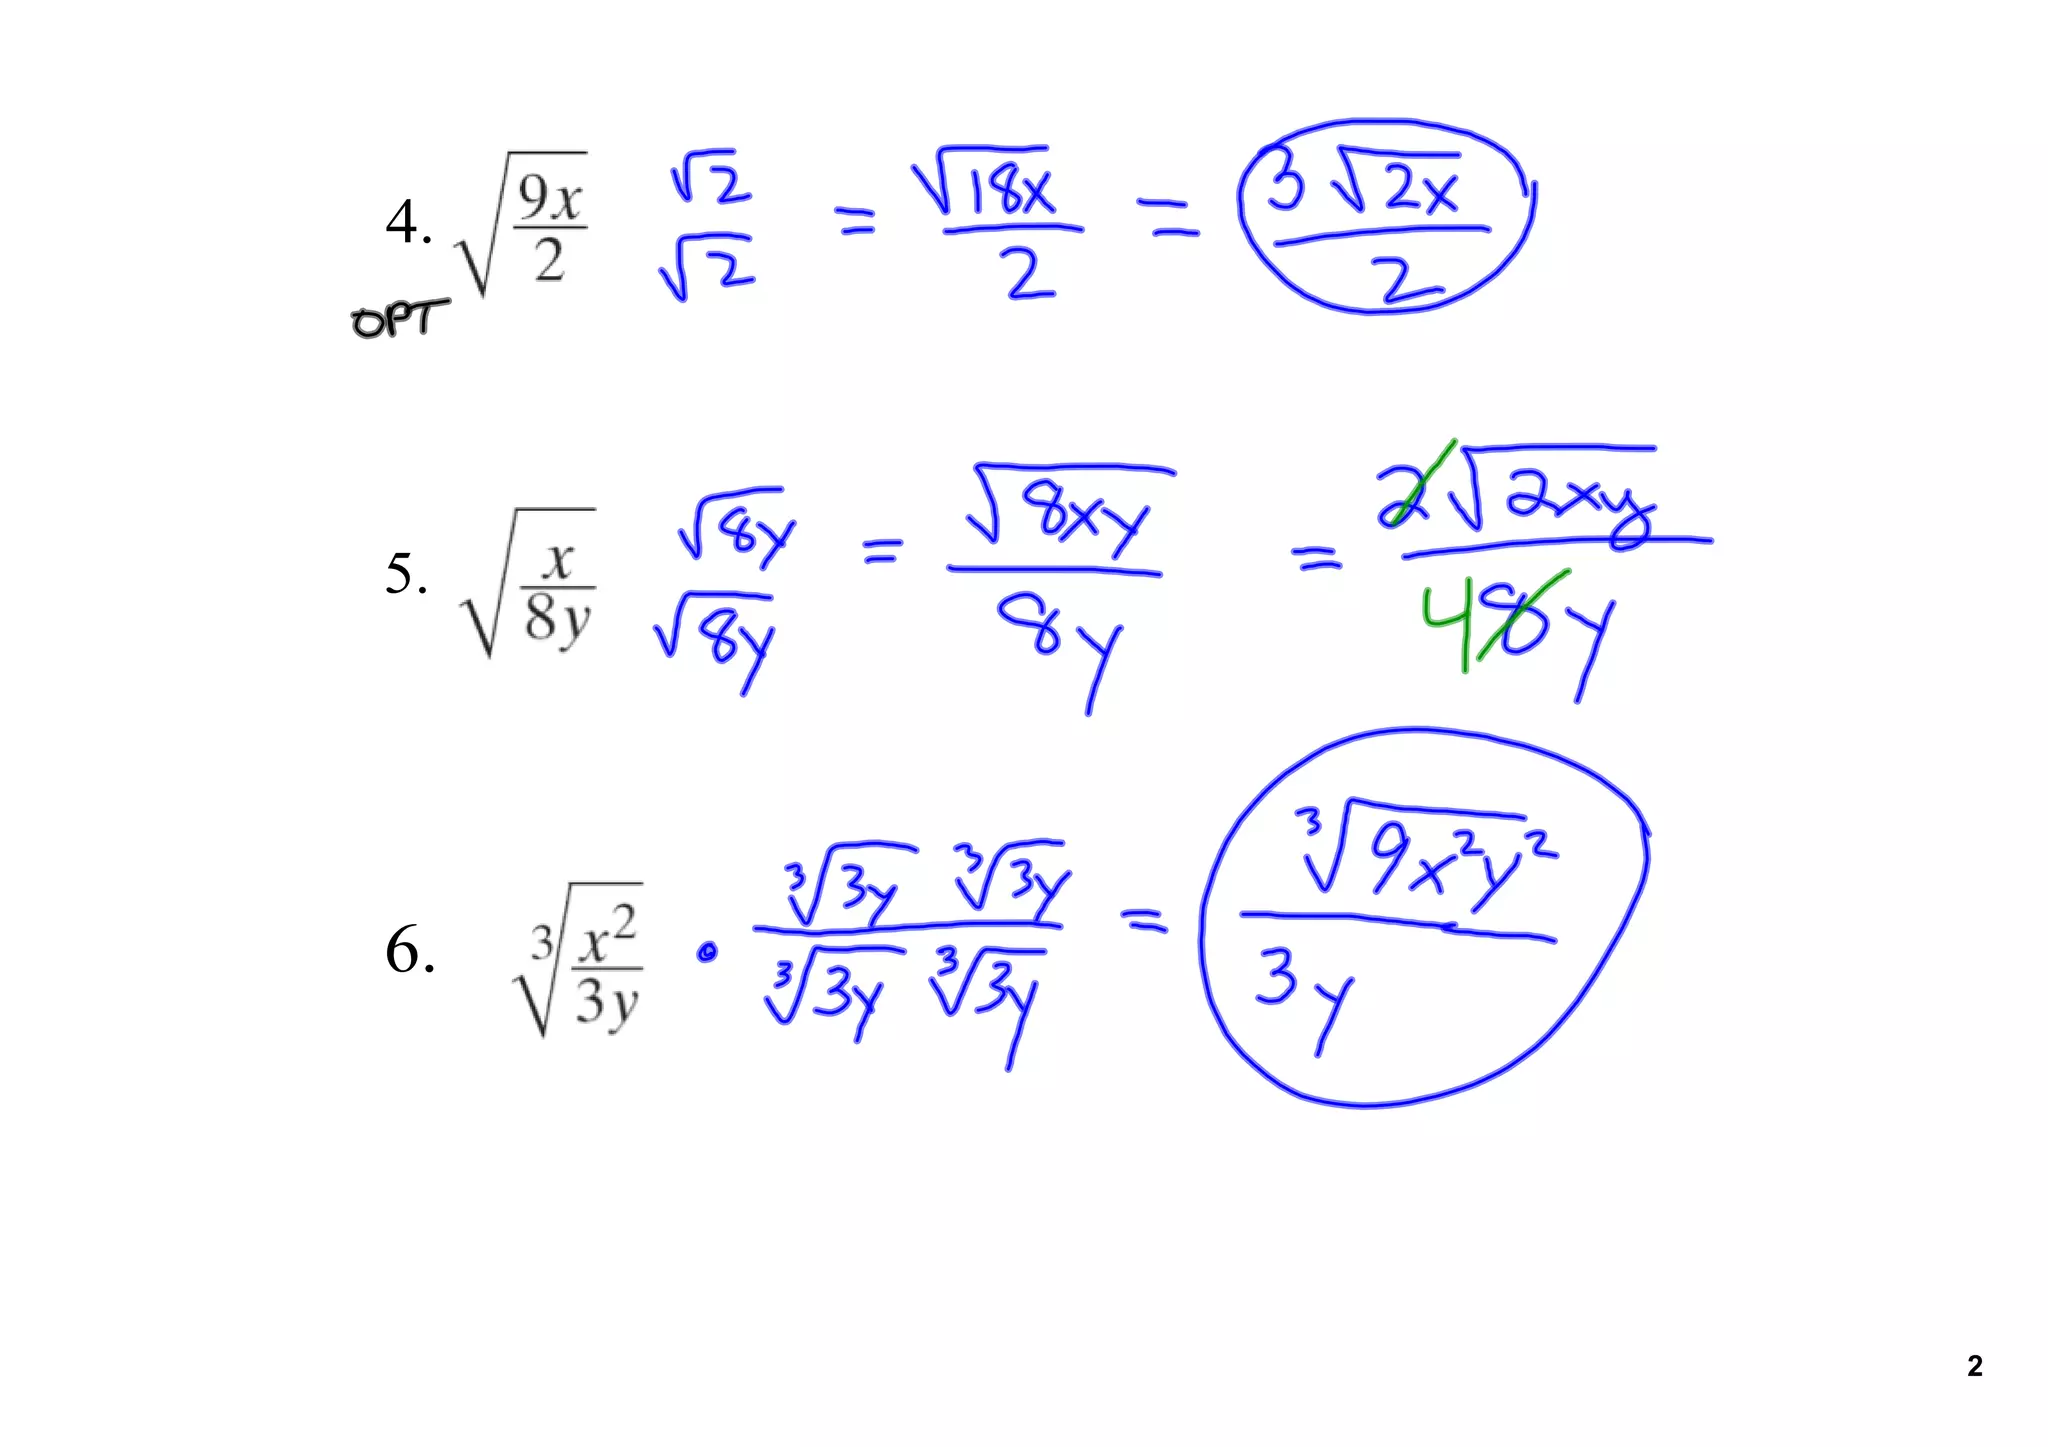 4. √(9x/2) √2/√2 = √18x/2 = 3√2x/2
OPT
5. √(x/8y) √8y/√8y = √8xy/8y = 2√2xy/4 8y
6. ∛(x²/3y) • ∛3y ∛3y/∛3y ∛3y = ∛9x²y²/3y
2